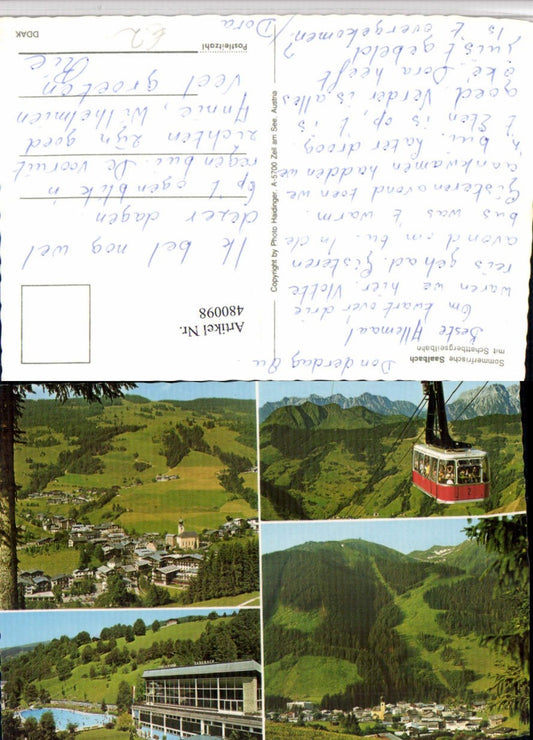 Sommerfrische Saalbach
mit Schattbergseilbahn
Donderdag 8u.
Beste Allemaal,
Om kwart over drie
waren we hier. Vlotte
reis gehad. Gisteren
avond om 8u. in de
bus was 't warm.
Gisterenavond toen we
aankwamen hadden we
'n bui. Later droog.
't Eten is op t is
goed. Verder is alles
oké. Dora heeft
juist gebeld
is 't overgekomen?
Copyright by Photo Haidinger, A-5700 Zell am See, Austria
Artikel Nr.
480098
Ik bel nog wel
dezer dagen
Op 't ogenblik 'n
regen bui. De vooruit
zichten zijn goed
Annie, Wilhelmien
Veel groeten
Dora
Postleitzahl
DDAK
62
SAALBACH
2